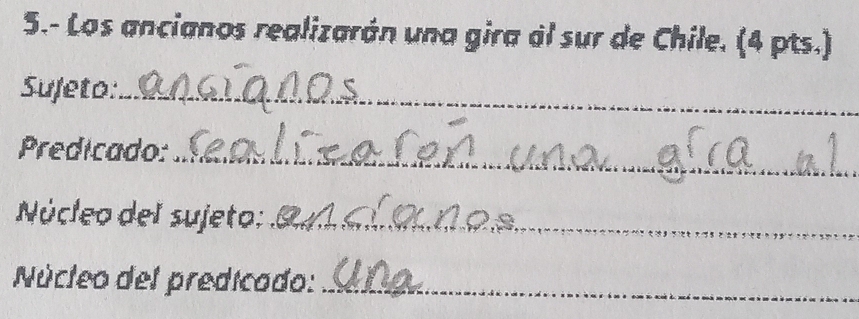 5.- Los ancianos realizarán una gira al sur de Chile. (4 pts.)
Sujeto: ancianos
Predicado: realizaron una gira al
Núcleo del sujeto: ancianos
Núcleo del predicado: una